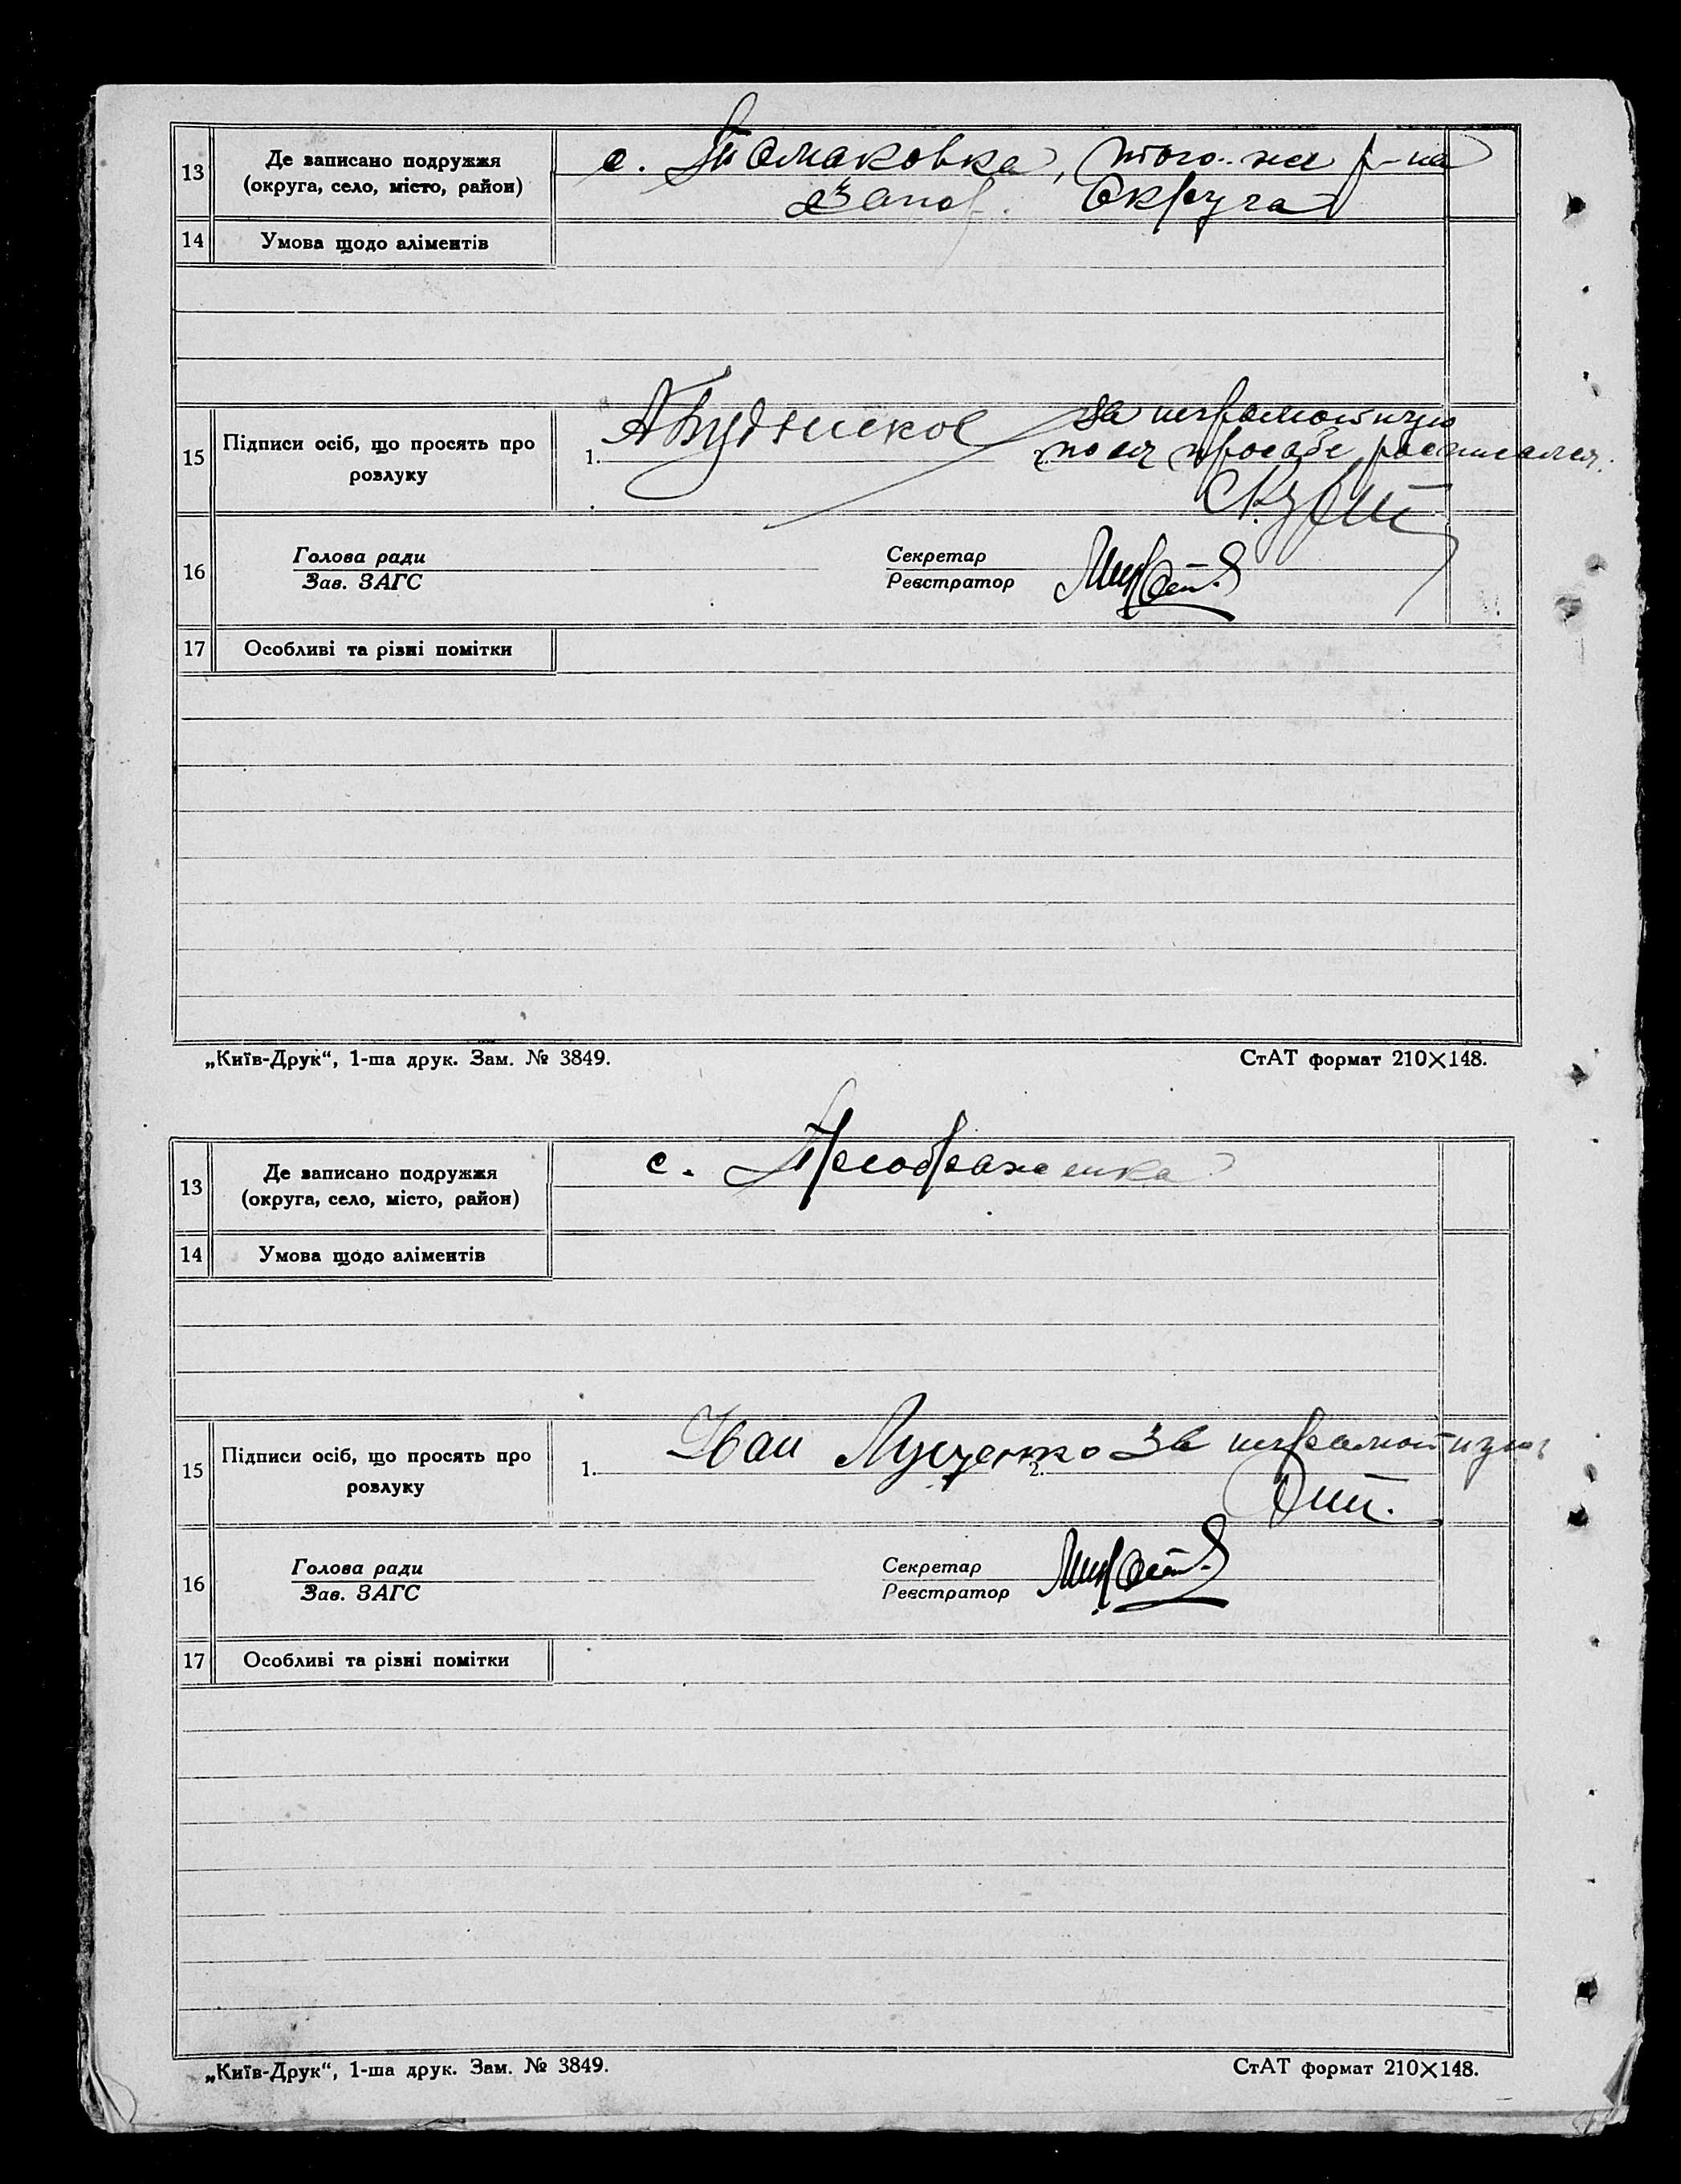 13 Де записано подружжя
(округа, село, місто, район)
с. Томаковка, того-же р-на
Запор. Округа
14 Умова щодо аліментів
15 Підписи осіб, що просять про
розлуку
1. за неграмотную
по ея просьбе расписался.
16 Голова ради
Зав. ЗАГС
Секретар
Реєстратор
17 Особливі та різні помітки
„Київ-Друк“, 1-ша друк. Зам. № 3849. СтАТ формат 210×148.
13 Де записано подружжя
(округа, село, місто, район)
с. Преображенка
14 Умова щодо аліментів
15 Підписи осіб, що просять про
розлуку
1. Іван Луценко 2. За неграмотную
16 Голова ради
Зав. ЗАГС
Секретар
Реєстратор
17 Особливі та різні помітки
„Київ-Друк“, 1-ша друк. Зам. № 3849. СтАТ формат 210×148.